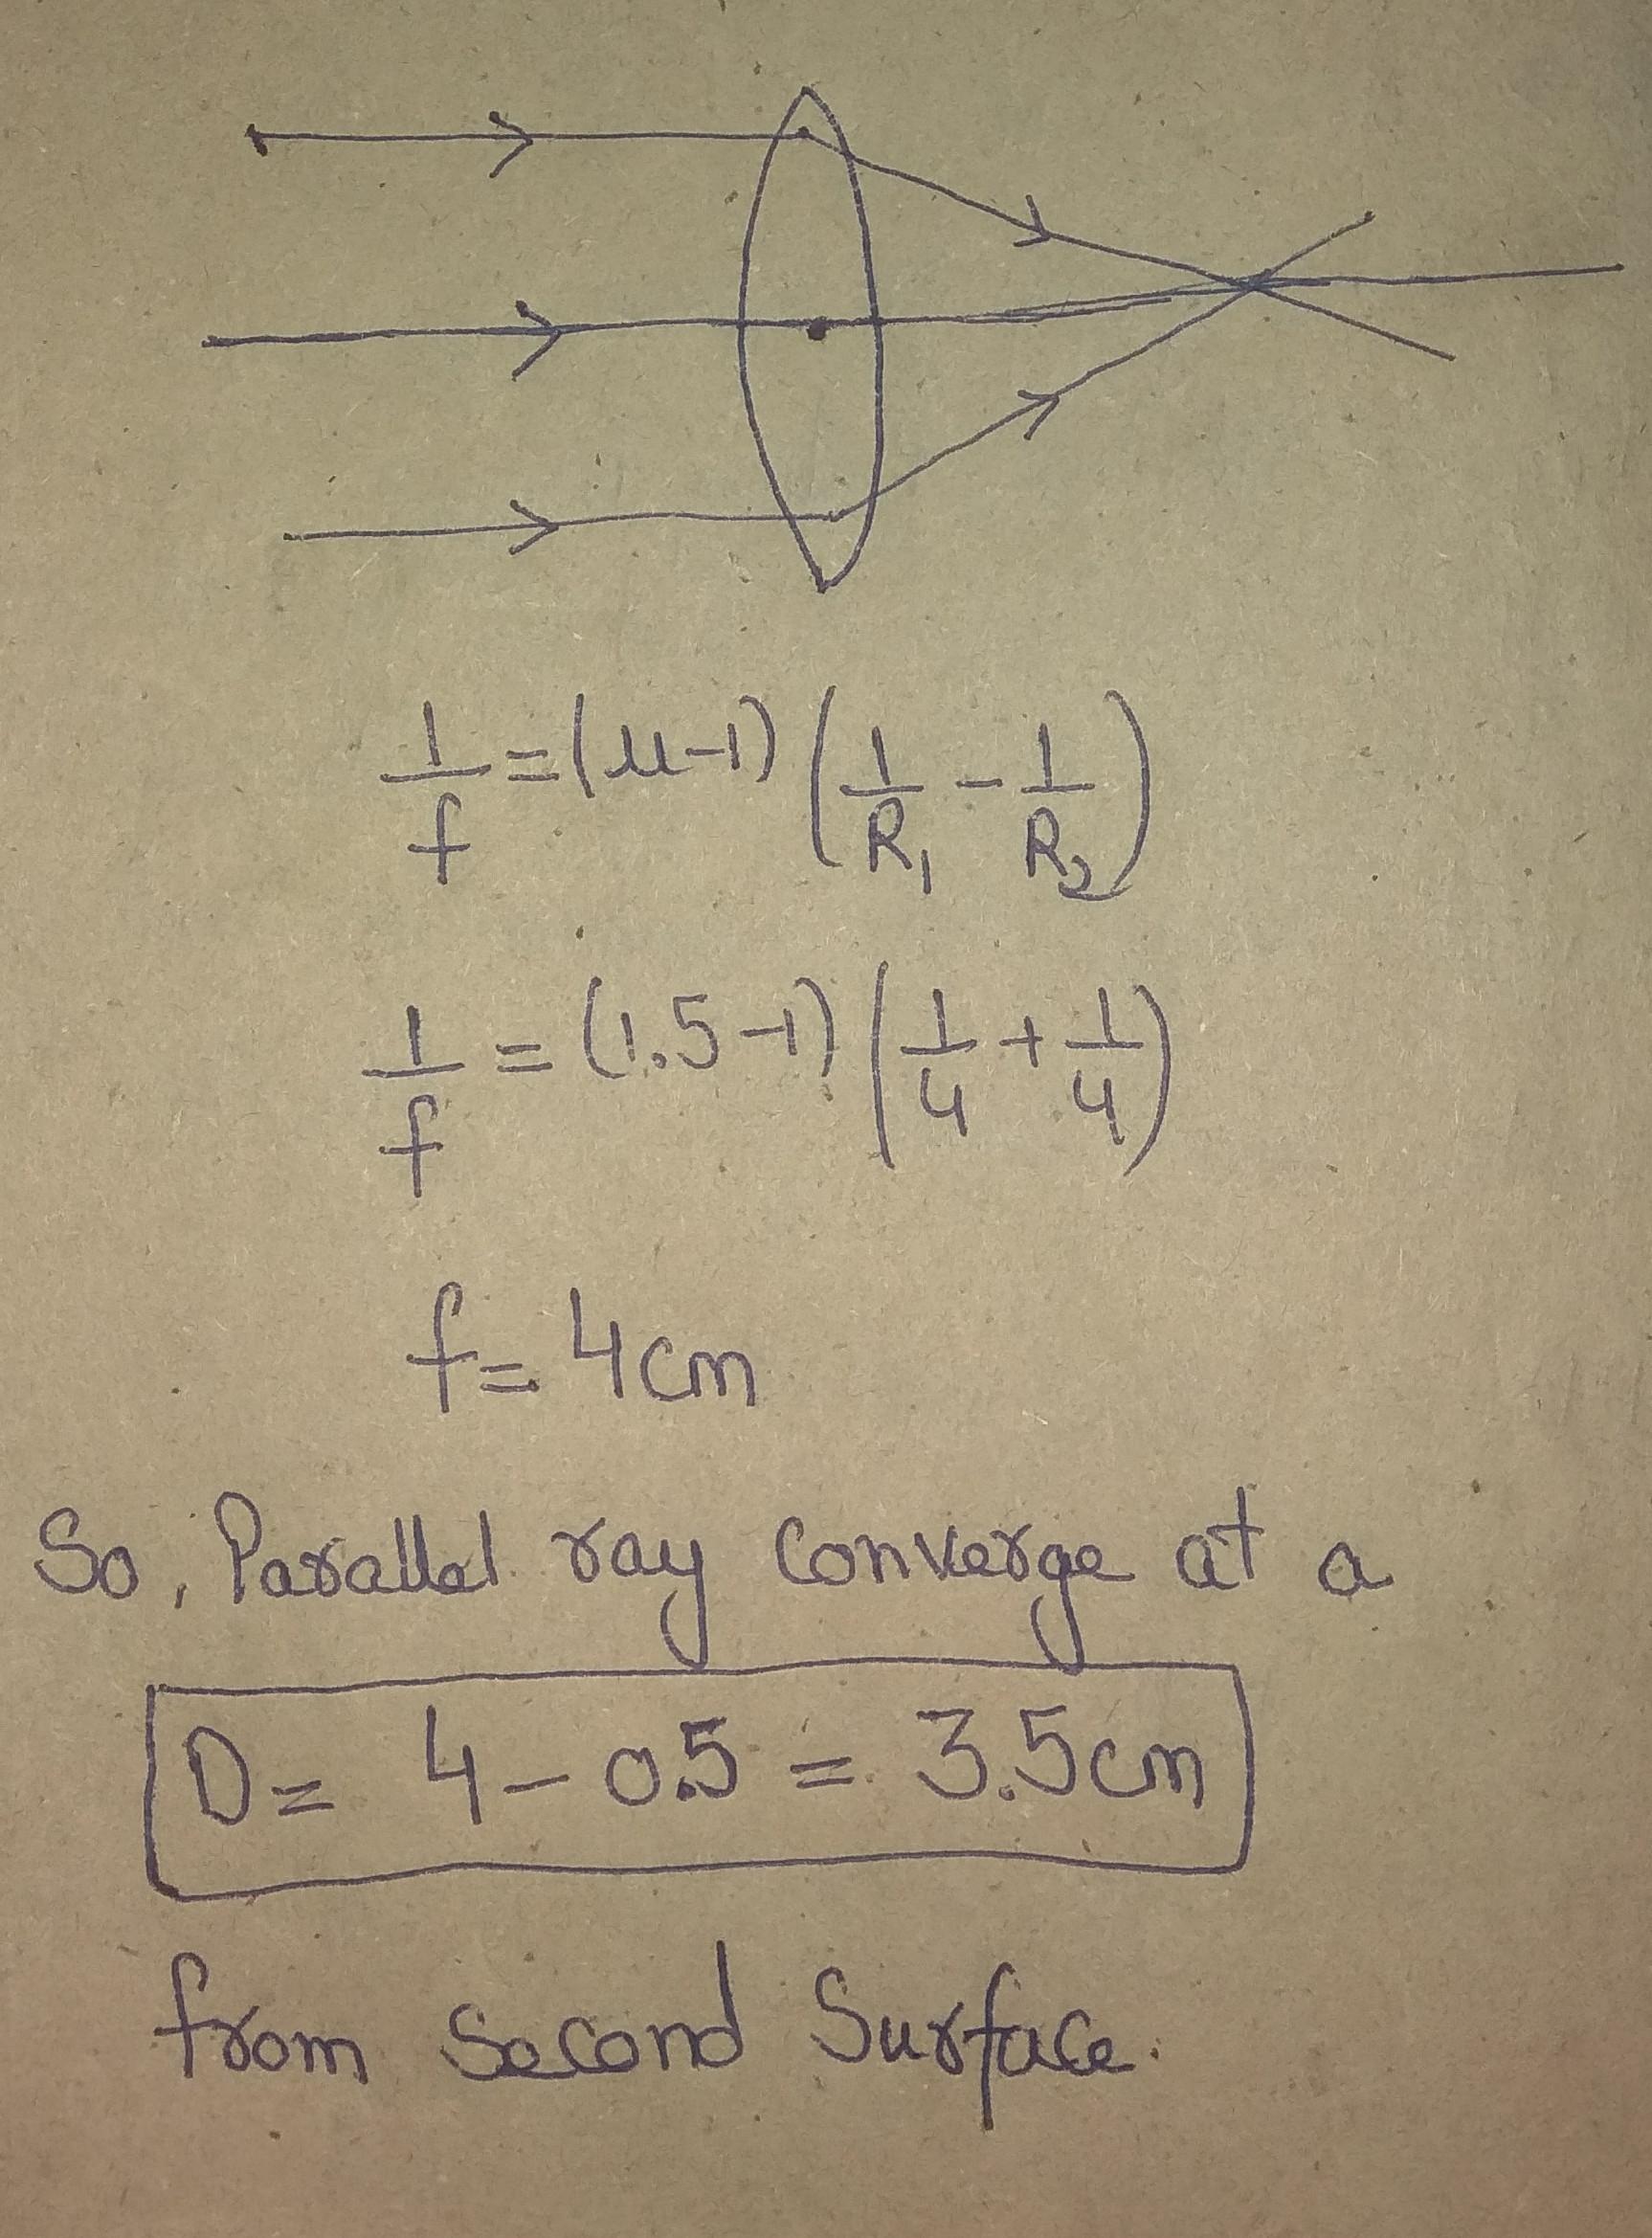 1/f = (μ-1) (1/R₁ - 1/R₂)
1/f = (1.5-1) (1/4 + 1/4)
f = 4cm
So, Parallel ray Converge at a
D = 4 - 0.5 = 3.5cm
from Second Surface.